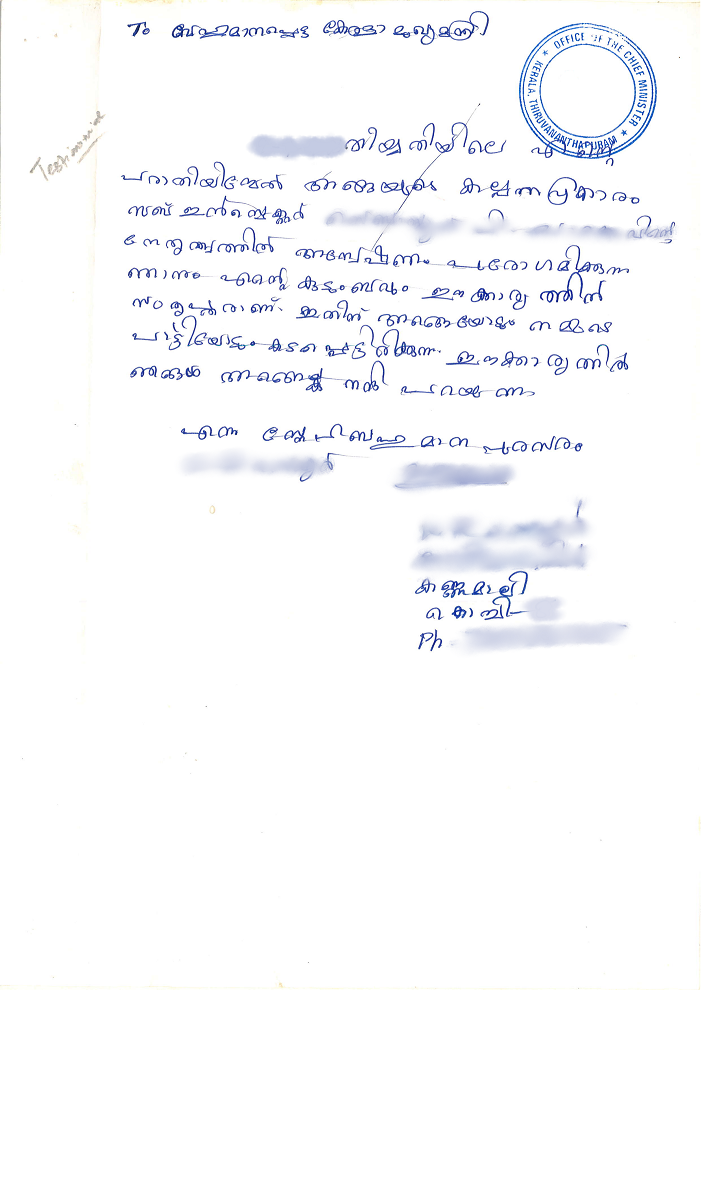 To ബഹുമാനപ്പെട്ട കേരളാ മുഖ്യമന്ത്രി
★ OFFICE OF THE CHIEF MINISTER ★ KERALA, THIRUVANANTHAPURAM
Testimonial
തിയ്യതിയിലെ എന്റെ
പരാതിയിന്മേൽ അങ്ങയുടെ കല്പന പ്രകാരം
സബ് ഇൻസ്പെക്ടർ
നേതൃത്വത്തിൽ അന്വേഷണം പുരോഗമിക്കുന്നു
ഞാനും എന്റെ കുടുംബവും ഈക്കാര്യത്തിൽ
സംതൃപ്തരാണ്. ഇതിന് അങ്ങയോടും നമ്മുടെ
പാർട്ടിയോടും കടപ്പെട്ടിരിക്കുന്നു. ഈക്കാര്യത്തിൽ
ഞങ്ങൾ അങ്ങേയ്ക്ക് നന്ദി പറയുന്നു
എന്ന് സ്നേഹബഹുമാന പുരസരം
കണ്ണമാലി
കൊച്ചി-
Ph